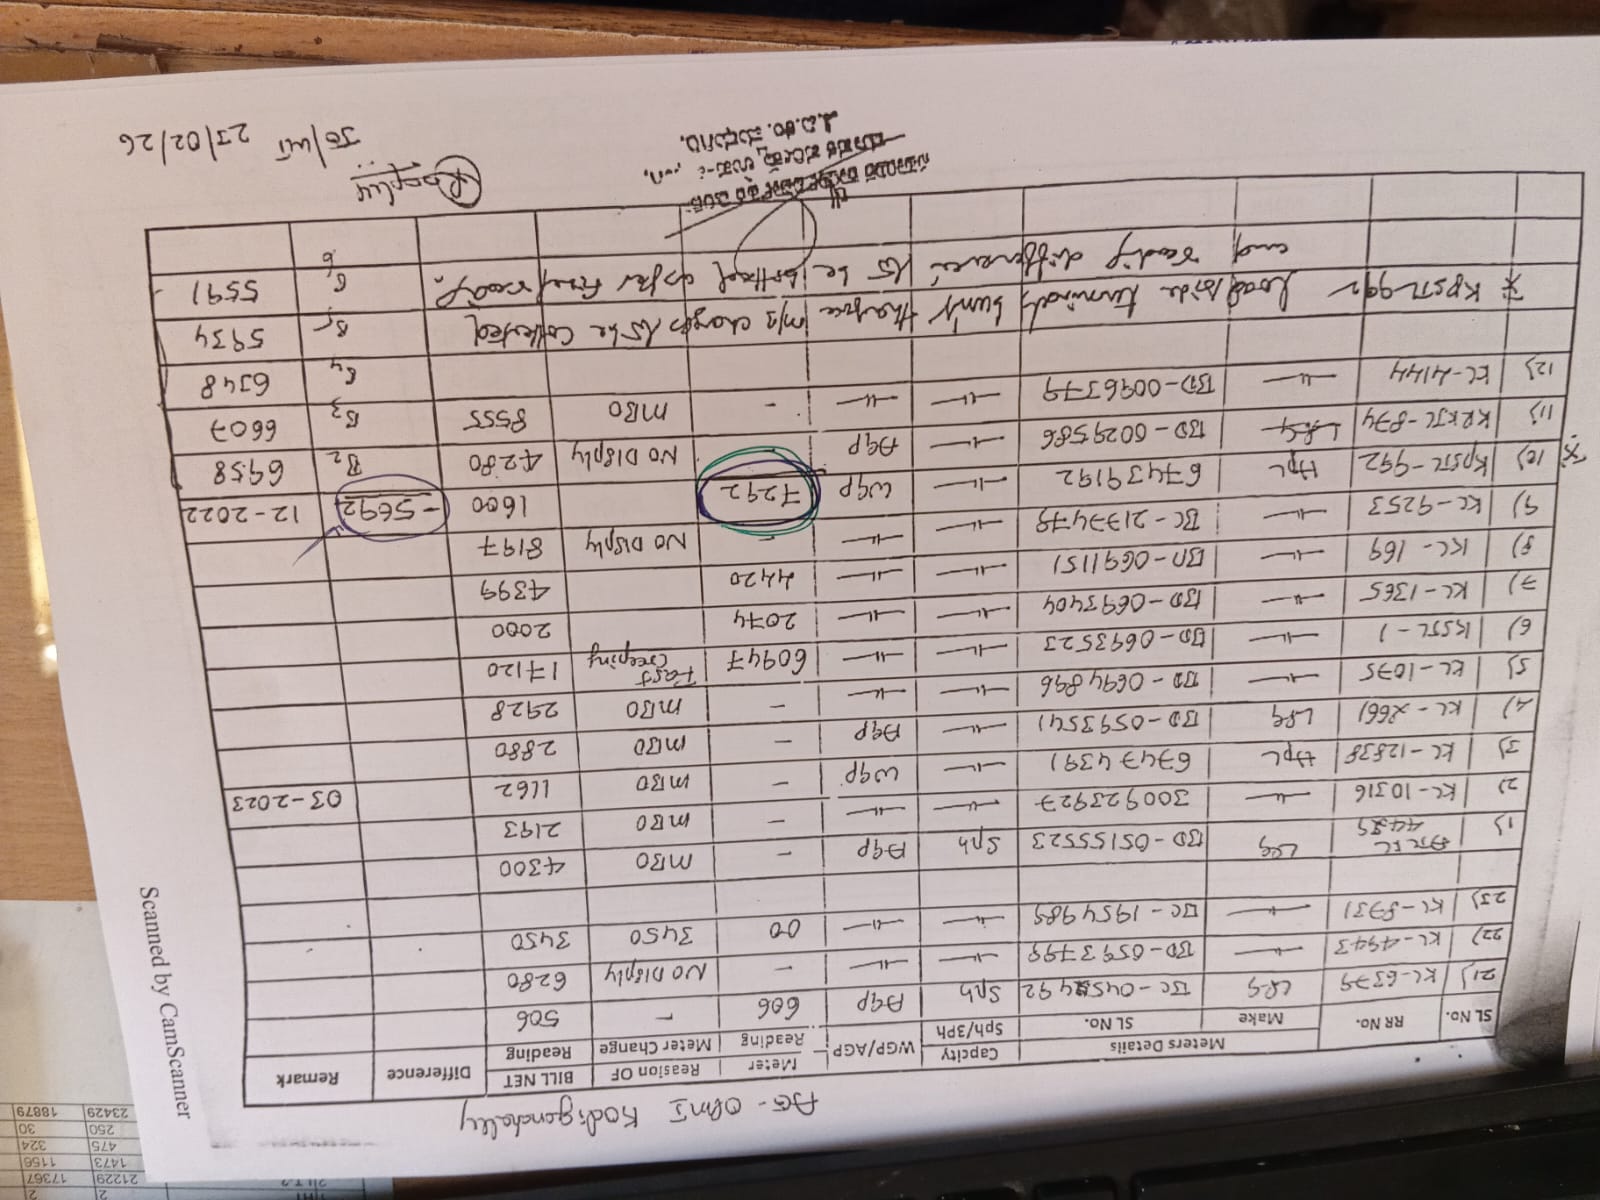 AE-O&M I Kodigenahally
SL No. RR No. Meters Details Capcity Sph/3Ph WGP/AGP Meter Reading Reasion OF Meter Change BILL NET Reading Difference Remark
Make SL No.
21) KL-6379 L&G Sph AGP 606 - 506
22) KL-4943 -"- BD-0593799 -"- -"- - No Disply 6280
23) KL-8931 -"- BC-1954989 -"- -"- 00 3450 3450
1) L&G BD-05155523 Sph AGP - MBO 4300
2) KL-10316 -"- 300923927 -"- -"- - MBO 2193
3) KL-12838 HPL 67474391 -"- WGP - MBO 1162 03-2023
4) KL-2661 L&G BD-0593541 -"- AGP - MBO 2880
5) KL-1075 -"- BD-0694896 -"- -"- - MBO 2928
6) KSSL-1 -"- BD-0693523 -"- -"- 60947 Fast Creeping 17120
7) KL-1365 -"- BD-0693404 -"- -"- 2074 2000
8) KL-169 -"- BD-0691151 -"- -"- 4420 4399
9) KL-9253 -"- BC-2177479 -"- -"- - No Disply 8197
10) KPSTL-992 HPL 67439192 -"- WGP 7292 1600 -5692 12-2022
11) KRKJL-874 L&G BD-0029586 -"- AGP No Disply 4280 B2 6958
12) KL-4144 -"- BD-0096379 -"- -"- - MBO 8555 B3 6607
B4 6348
* KPSTL-992 Load side terminals burnt therfore M/s charges to be collected B5 5934
and readig difference to be billed asper Final readig. 5591
23/02/26